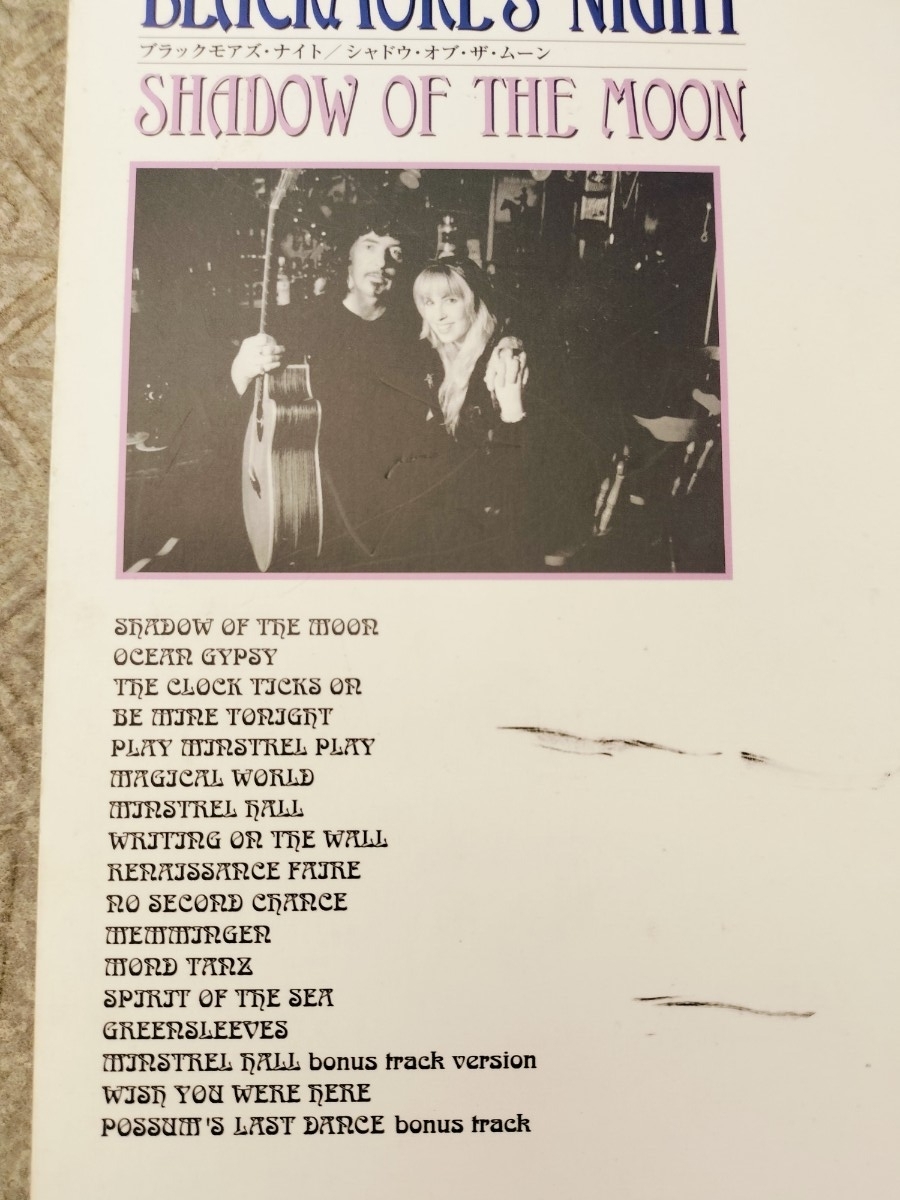 BLACKMORE'S NIGHT
ブラックモアズ・ナイト／シャドウ・オブ・ザ・ムーン
SHADOW OF THE MOON
SHADOW OF THE MOON
OCEAN GYPSY
THE CLOCK TICKS ON
BE MINE TONIGHT
PLAY MINSTREL PLAY
MAGICAL WORLD
MINSTREL HALL
WRITING ON THE WALL
RENAISSANCE FAIRE
NO SECOND CHANCE
MEMMINGEN
MOND TANZ
SPIRIT OF THE SEA
GREENSLEEVES
MINSTREL HALL bonus track version
WISH YOU WERE HERE
POSSUM'S LAST DANCE bonus track